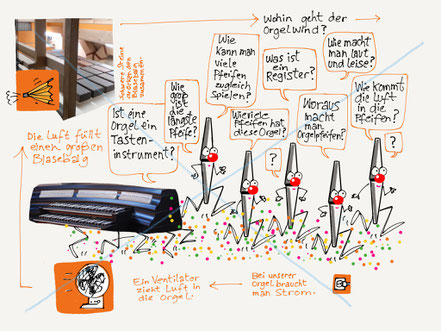 Wohin geht der
Orgelwind?
Schwere Steine
drücken den
Blasebalg
zusammen
Die Luft füllt
einen großen
Blasebalg
Ist eine
Orgel ein
Tasten-
instrument?
Wie
groß
ist die
längste
Pfeife?
Wie
kann man
viele
Pfeifen
zugleich
spielen?
Wieviele
Pfeifen hat
diese Orgel?
Was ist
ein
Register?
?
Woraus
macht
man
Orgelpfeifen?
Wie macht
man laut
und leise?
Wie kommt
die Luft
in die
Pfeifen?
?
Ein Ventilator
zieht Luft in
die Orgel.
Bei unserer
Orgel braucht
man Strom.